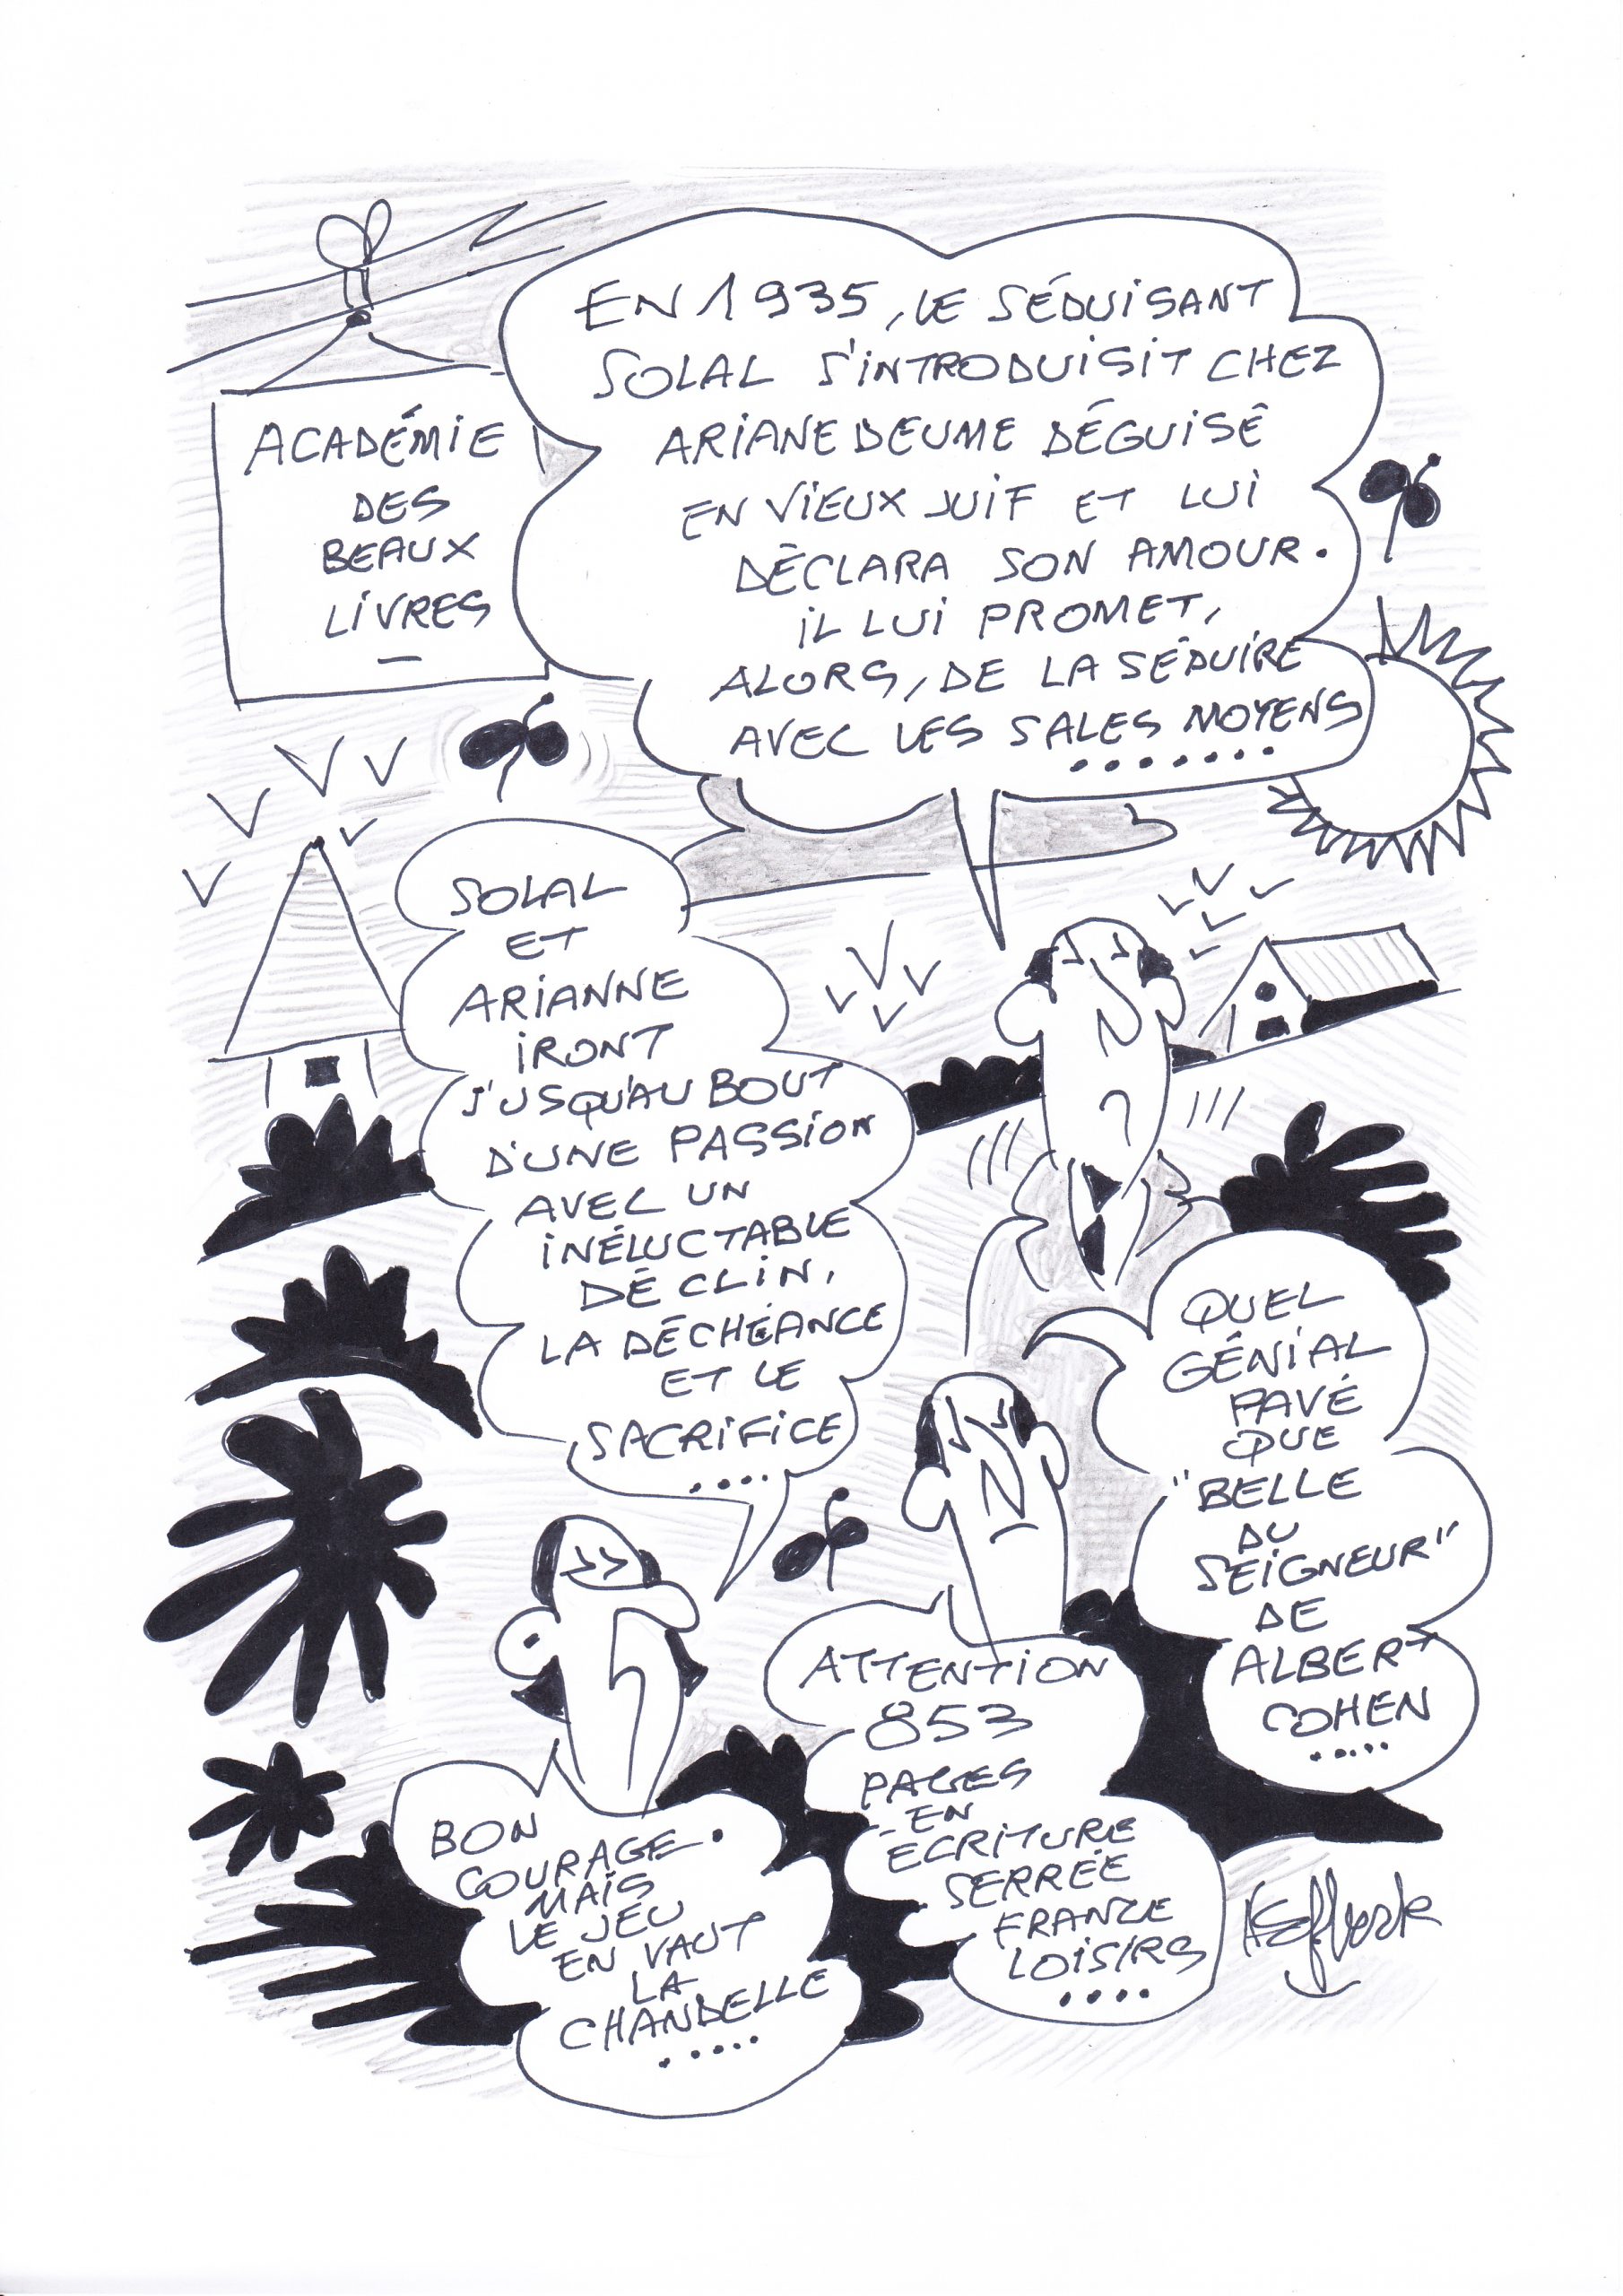 ACADÉMIE
DES
BEAUX
LIVRES
EN 1935, LE SÉDUISANT
SOLAL S'INTRODUISIT CHEZ
ARIANE DEUME DÉGUISÉ
EN VIEUX JUIF ET LUI
DÉCLARA SON AMOUR.
IL LUI PROMET,
ALORS, DE LA SÉDUIRE
AVEC LES SALES MOYENS
.......
SOLAL
ET
ARIANNE
IRONT
JUSQU'AU BOUT
D'UNE PASSION
AVEC UN
INÉLUCTABLE
DÉCLIN,
LA DÉCHÉANCE
ET LE
SACRIFICE
....
QUEL
GÉNIAL
PAVÉ
QUE
"BELLE
DU
SEIGNEUR"
DE
ALBERT
COHEN
.....
ATTENTION
853
PAGES
EN
ÉCRITURE
SERRÉE
FRANCE
LOISIRS
....
BON
COURAGE.
MAIS
LE JEU
EN VAUT
LA
CHANDELLE
.....